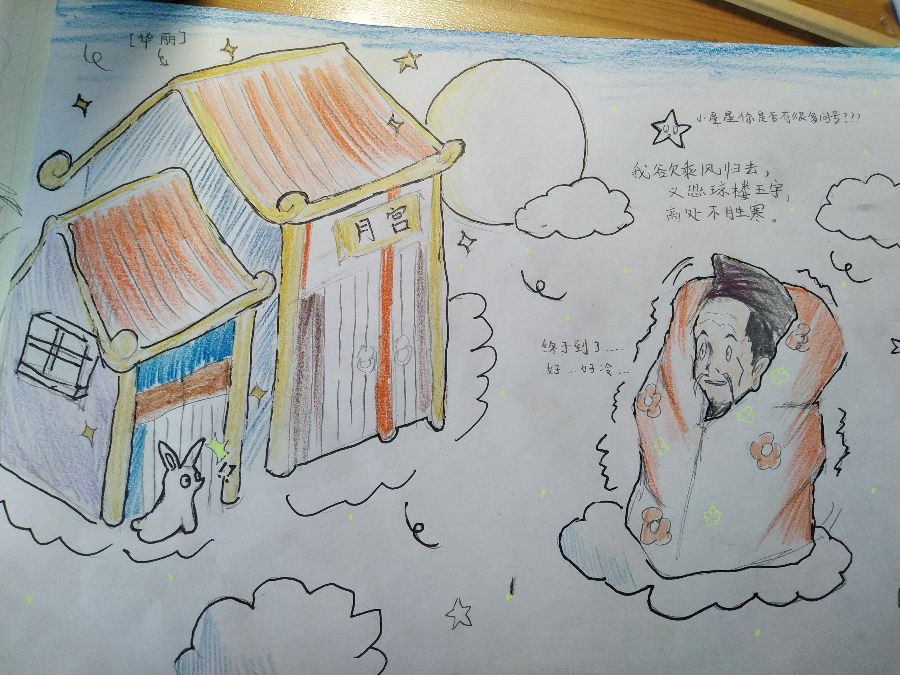 [华丽]
小星星你是否有很多问号???
我欲乘风归去，
又恐琼楼玉宇，
高处不胜寒。
月宫
终于到了……
好…好冷…
!?